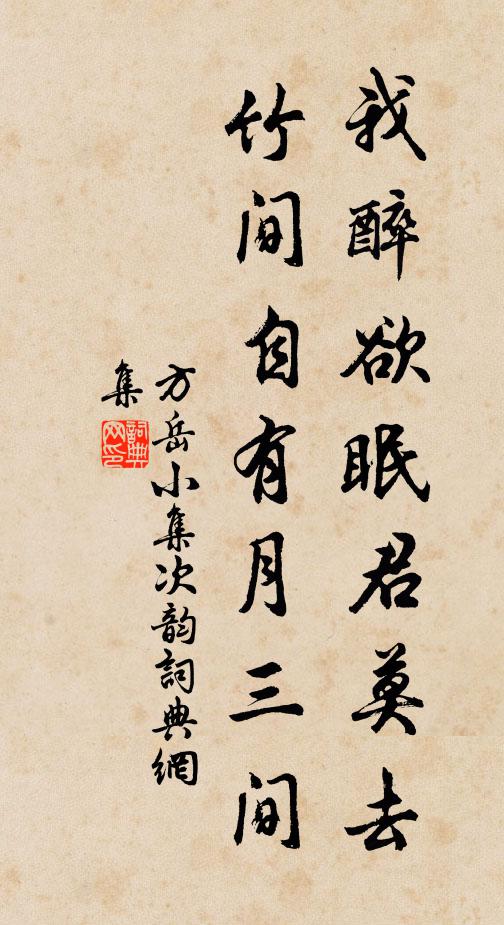 我醉欲眠君莫去
竹间自有月三间
方岳小集次韵詞典網
集
詞典
网印